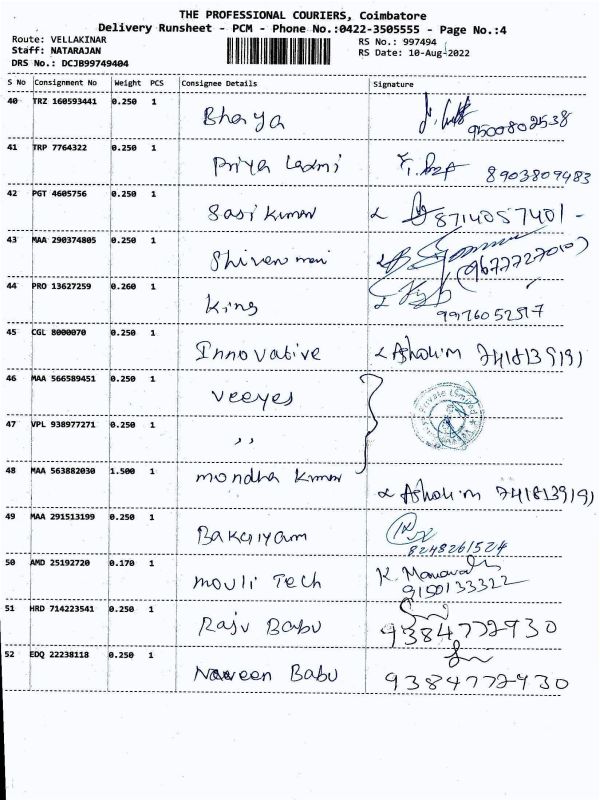 THE PROFESSIONAL COURIERS, Coimbatore
Delivery Runsheet - PCM - Phone No.:0422-3505555 - Page No.:4
Route: VELLAKINAR RS No.: 997494
Staff: NATARAJAN RS Date: 10-Aug-2022
DRS No.: DCJB99749404
S No Consignment No Weight PCS Consignee Details Signature
40 TRZ 160593441 0.250 1 Bhaiya 9500802538
41 TRP 7764322 0.250 1 Priya Laxmi 8903809483
42 PGT 4605756 0.250 1 Sasi Kumar 8714057401
43 MAA 290374805 0.250 1
44 PRO 13627259 0.260 1 King 9976052517
45 CGL 8000070 0.250 1 Innovative Asholim 7418139191
46 MAA 566589451 0.250 1 Veeyes Private Limited
47 VPL 938977271 0.250 1 ,,
48 MAA 563882030 1.500 1 Asholim 7418139191
49 MAA 291513199 0.250 1 Bakaiyam 8248261524
50 AMD 25192720 0.170 1 Mouli Tech 9150133322
51 HRD 714223541 0.250 1 Raju Babu 9384772930
52 EDQ 22238118 0.250 1 Naveen Babu 9384772930